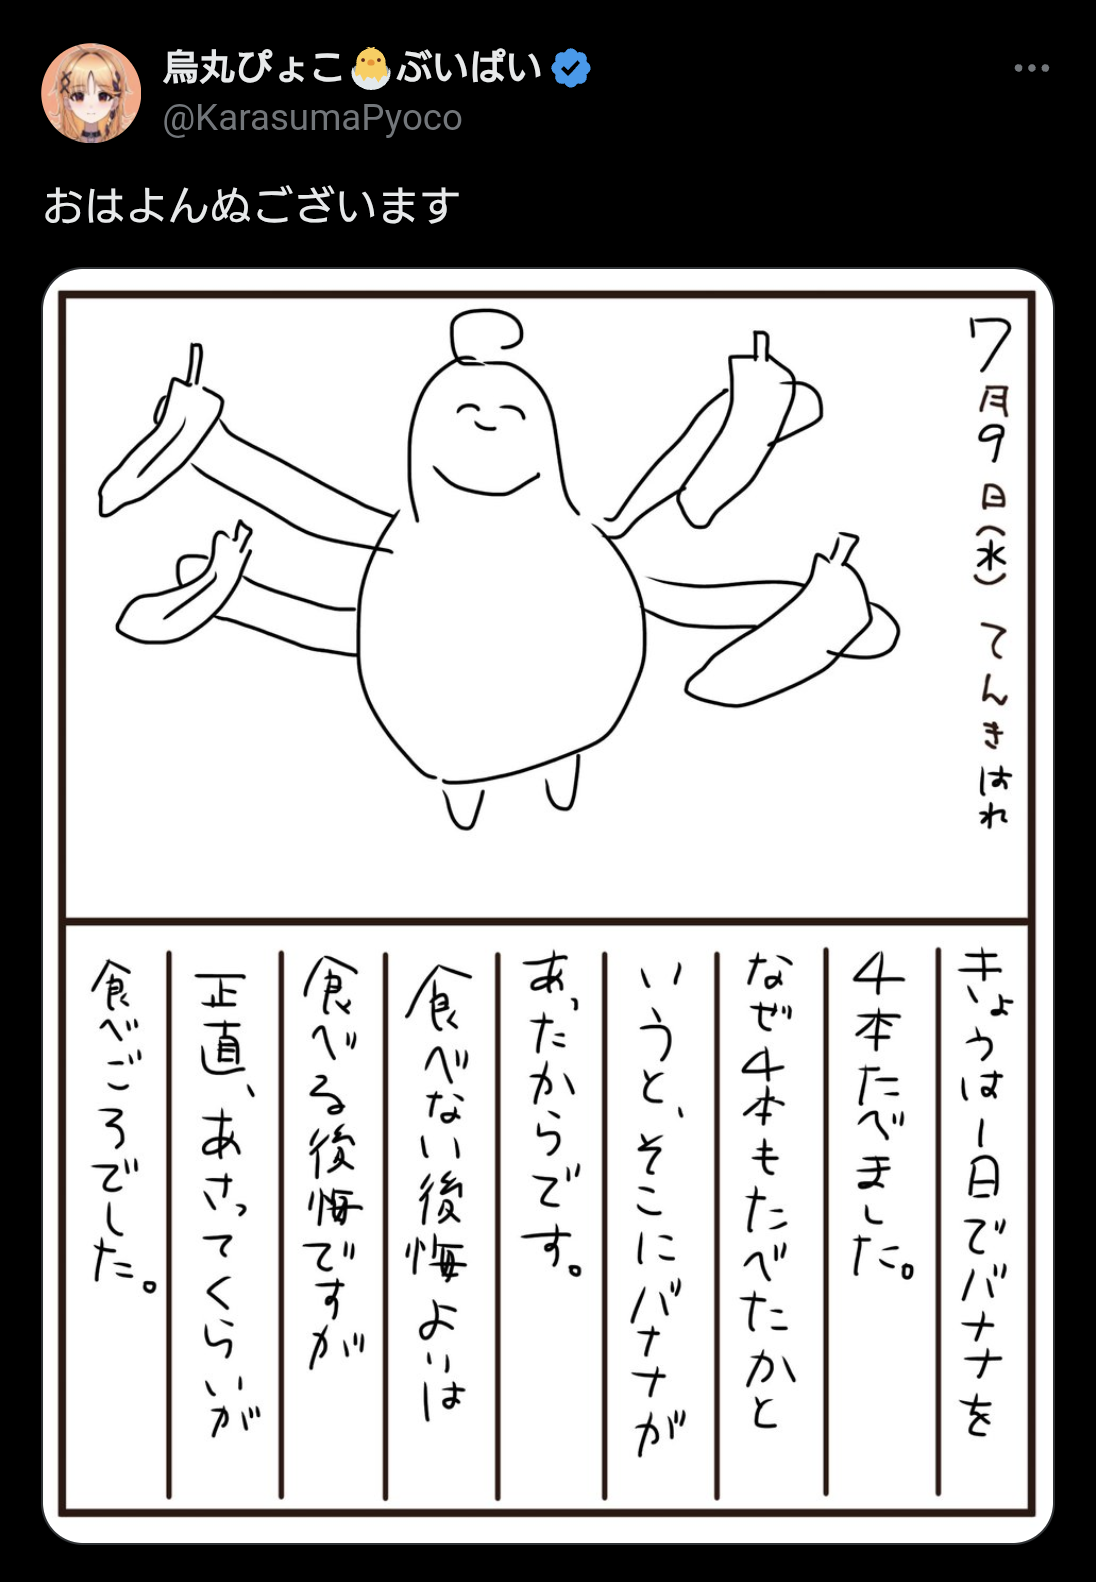 烏丸ぴょこ🐣ぶいぱい
@KarasumaPyoco
おはよんぬございます
7月9日(水) てんきはれ
きょうは1日でバナナを
4本たべました。
なぜ4本もたべたかと
いうと、そこにバナナが
あったからです。
食べない後悔よりは
食べる後悔ですが
正直、あさってくらいが
食べごろでした。